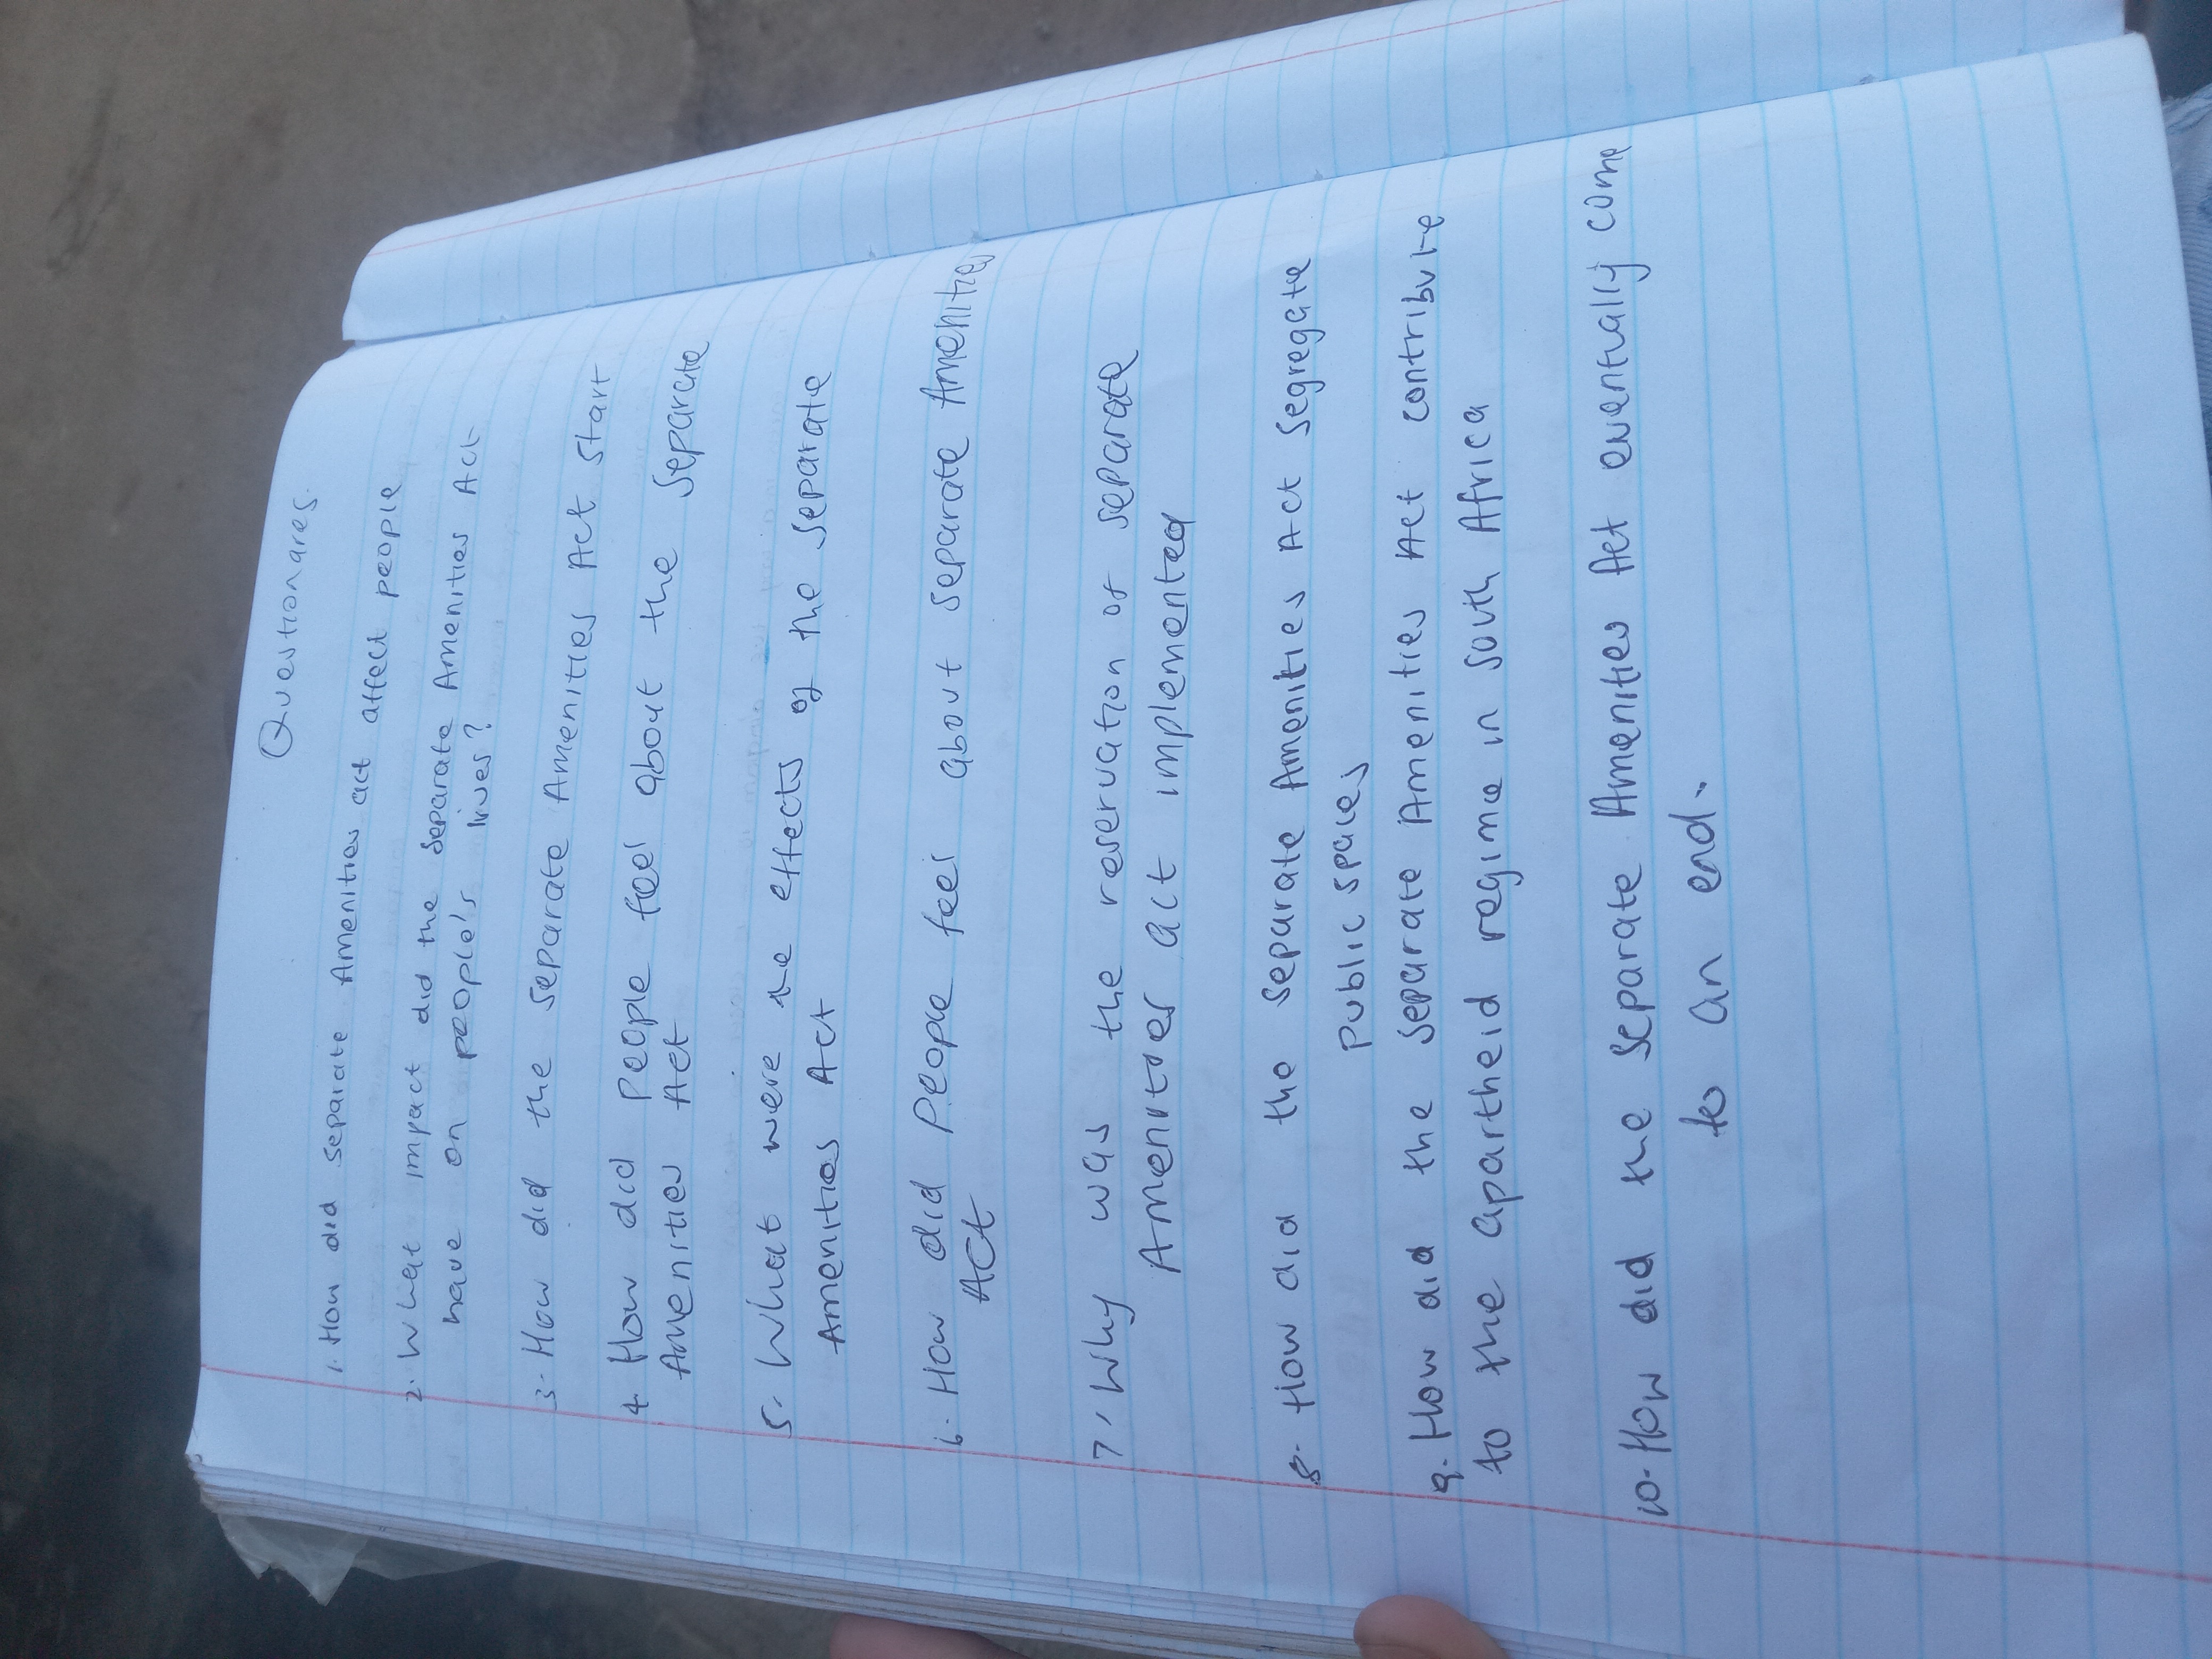 Questionares.
1. How did separate Amenities act affect people
2. What impact did the Separate Amenities Act
have on people's lives?
3. How did the separate Amenities Act start
4. How did people feel about the Separate
Amenities Act
5. What were the effects of the separate
Amenities Act
6. How did people feel about separate Amenities
Act
7. Why was the reservation of separate
Amenities act implemented
8. How did the separate Amenities Act segregate
public spaces
9. How did the separate Amenities Act contribute
to the apartheid regime in south Africa
10. How did the separate Amenities Act eventually come
to an end.